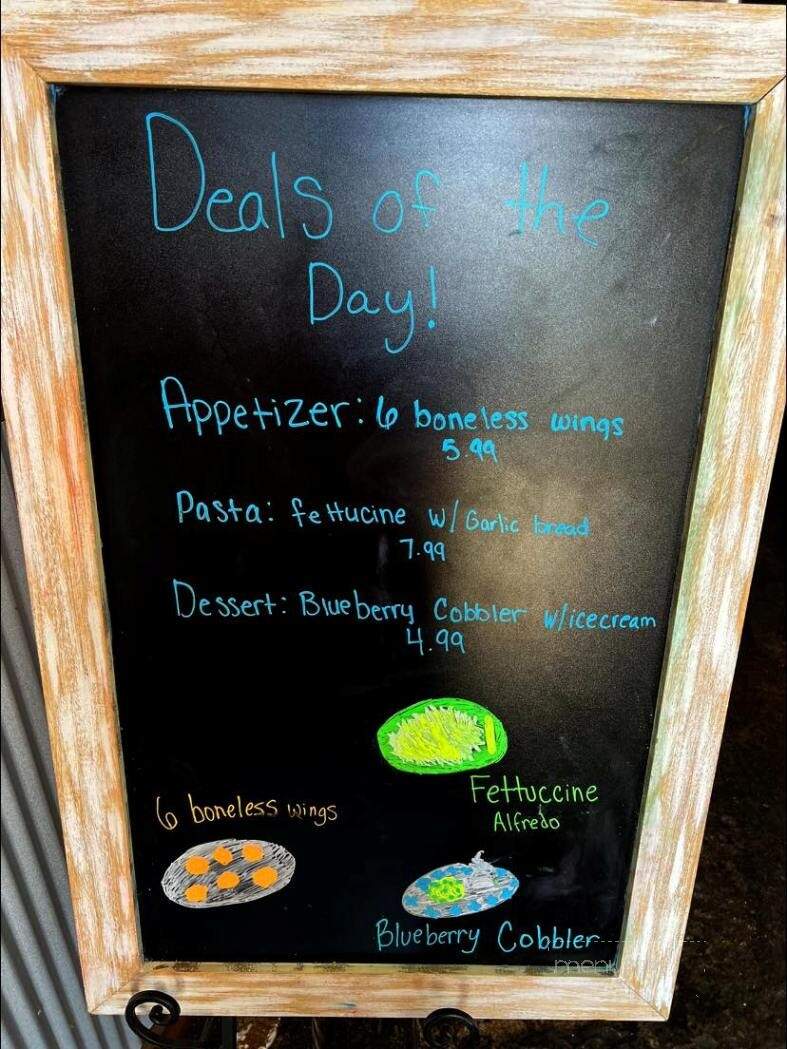 Deals of the
Day!
Appetizer: 6 boneless wings
5.99
Pasta: fettucine w/ Garlic bread
7.99
Dessert: Blueberry Cobbler w/icecream
4.99
Fettuccine
Alfredo
6 boneless wings
Blueberry Cobbler